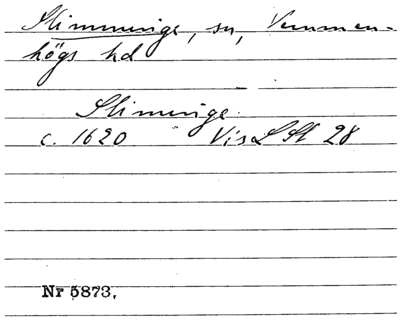 Slimminge, sn, Vemmen-
högs hd
Sliminge
c. 1620 VisLSt 28
Nr 5873.